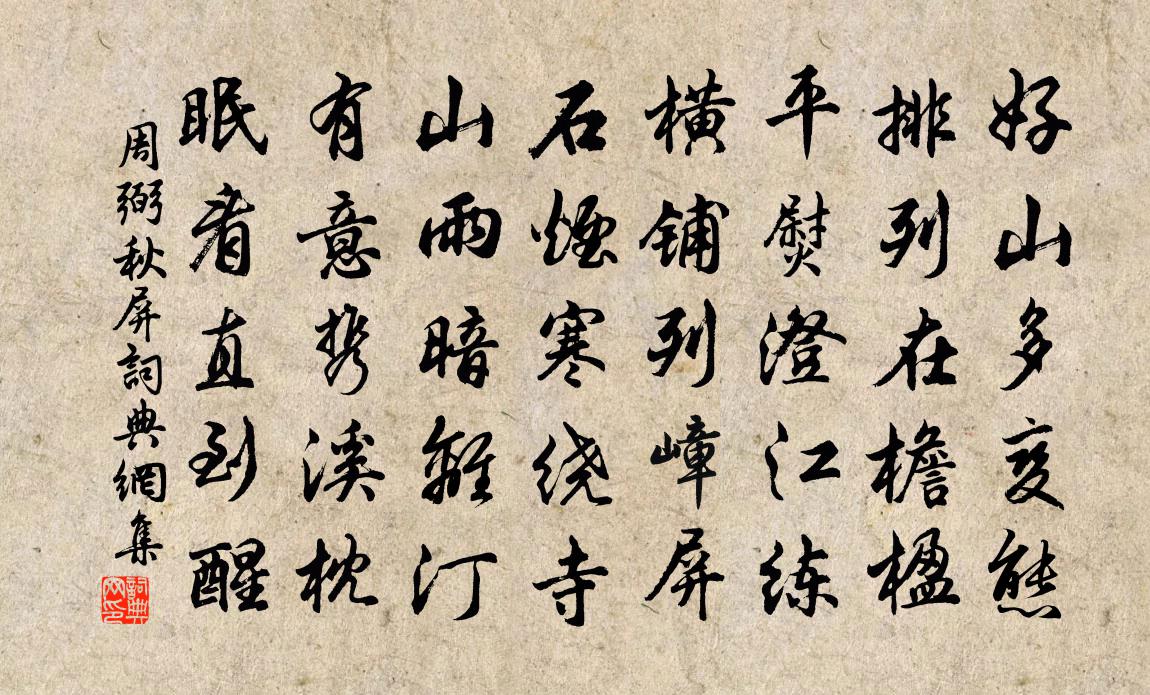 好山多变態
排列在檐楹
平熨澄江练
横铺列嶂屏
石煙寒绕寺
山雨暗離汀
有意携溪枕
眠看直到醒
周弼秋屏詞典網集
詞典网印